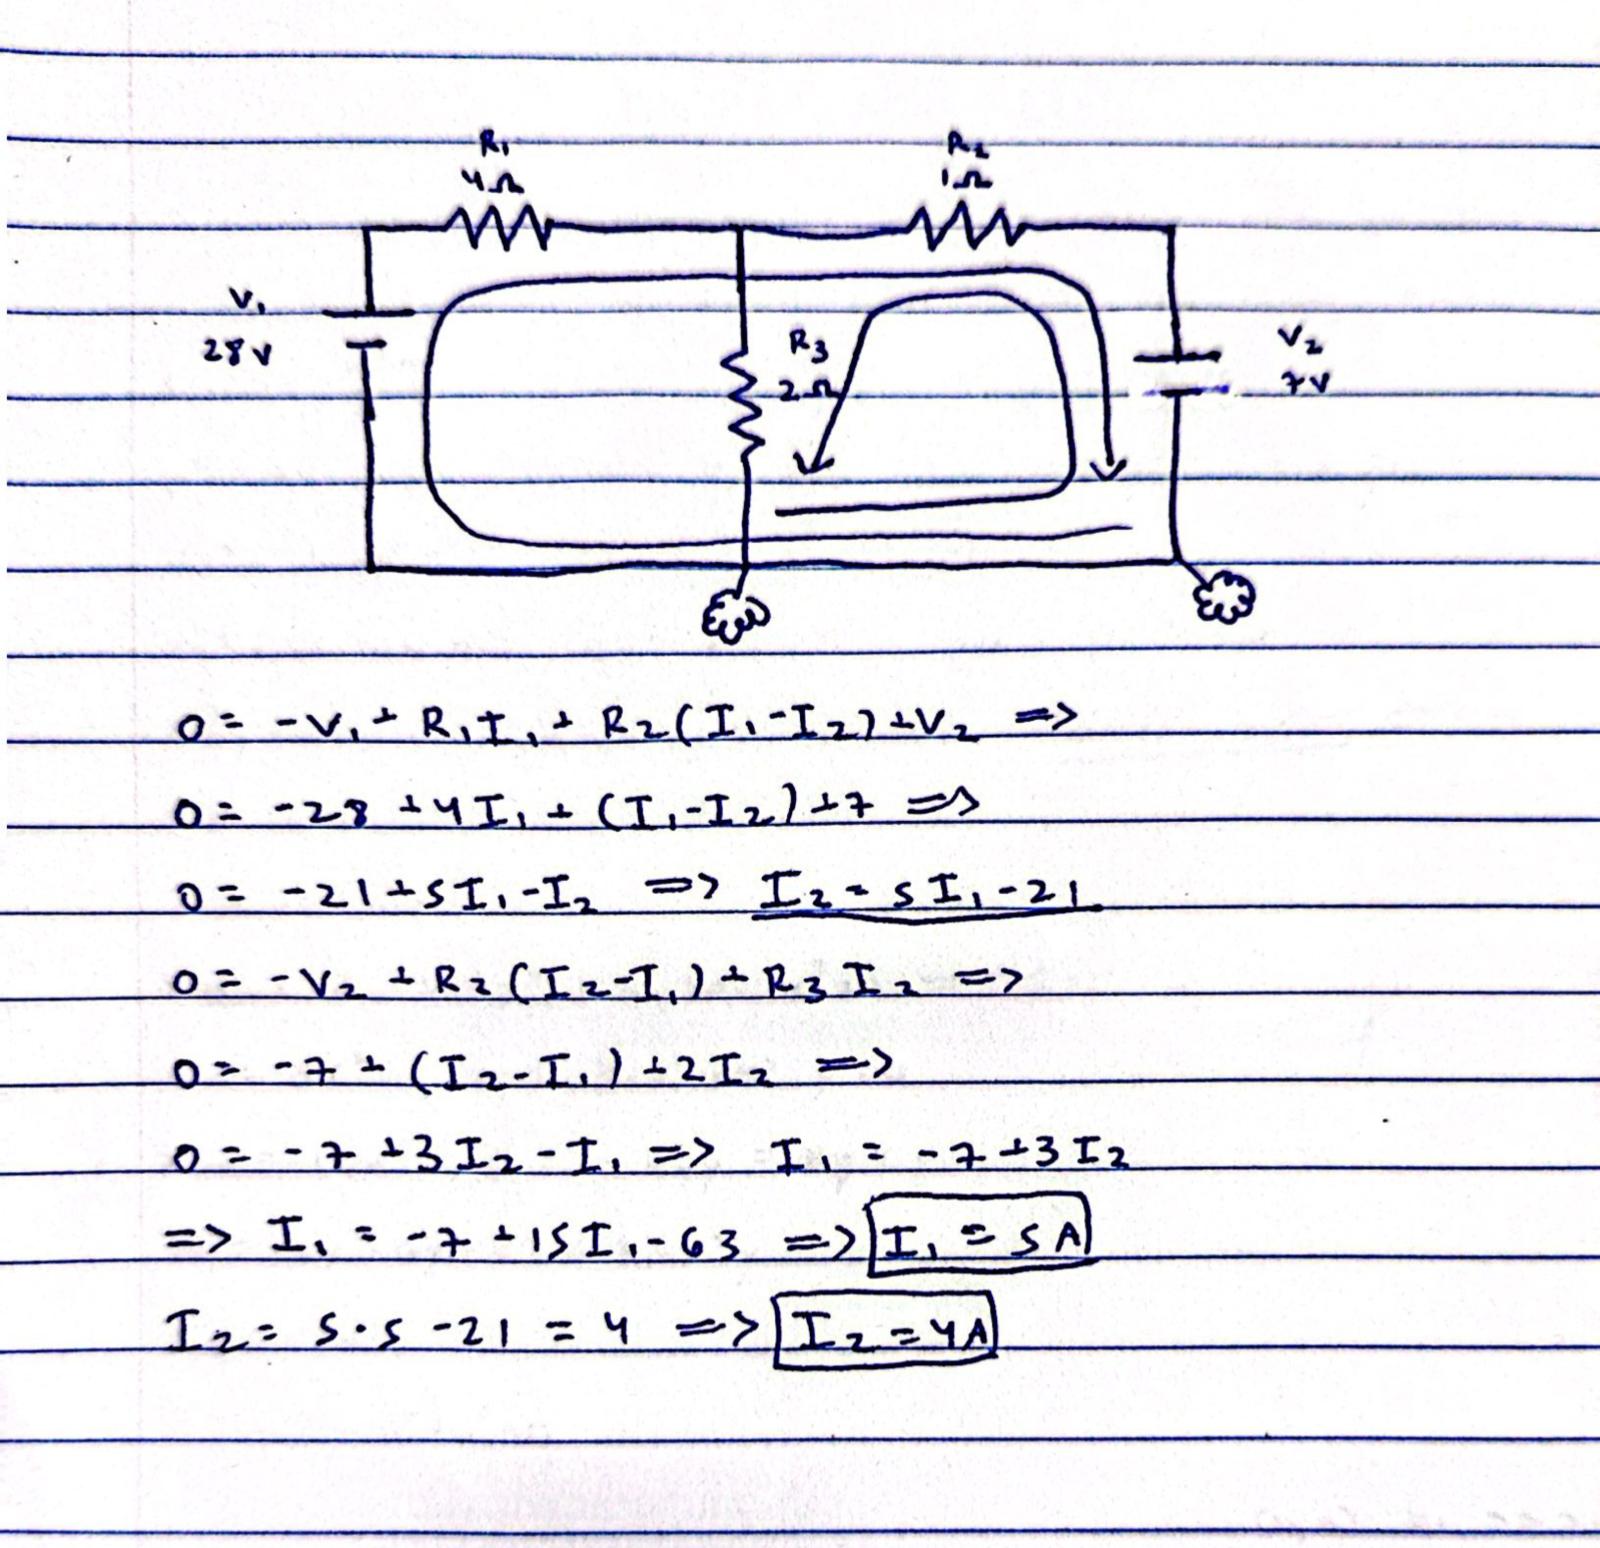 R₁ R₂
4Ω 1Ω
V₁ R₃ V₂
28V 2Ω 7V
0 = -V₁ + R₁I₁ + R₂(I₁-I₂)+V₂ =>
0 = -28 +4I₁ + (I₁-I₂)+7 =>
0 = -21+5I₁-I₂ => I₂ = 5I₁-21
0 = -V₂ + R₂(I₂-I₁)+R₃I₂ =>
0 = -7 + (I₂-I₁)+2I₂ =>
0 = -7+3I₂-I₁ => I₁ = -7+3I₂
=> I₁ = -7+15I₁-63 => I₁ = 5A
I₂ = 5·5-21 = 4 => I₂=4A